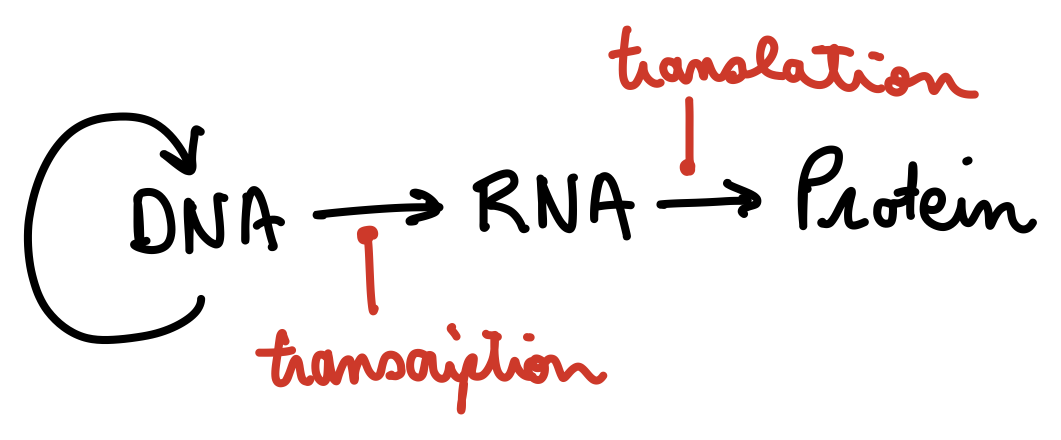 translation
DNA → RNA → Protein
transcription